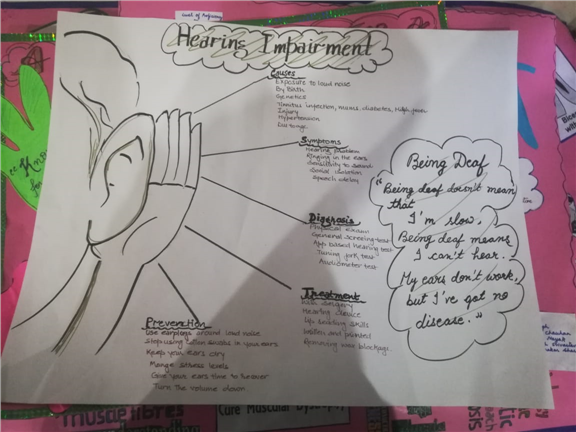 Hearing Impairment
Causes
Exposure to loud noise
By Birth
Genetics
infection, mums, diabetes, High fever
Injury
Hypertension
Symptoms
Hearing problem
Ringing in the ears
Sensitivity to sound
Social isolation
Speech delay
Diagnosis
Physical exam
General screening test
App based hearing test
Tuning fork test
Audiometer test
Treatment
surgery
Hearing device
Lip reading skills
Listen and
Removing wax blockage
Prevention
Use earplugs around loud noise
Stop using cotton swabs in your ears
Keep your ears dry
Mange stress levels
Give your ears time to recover
Turn the volume down
Being Deaf
"Being deaf doesn't mean
that
I'm slow,
Being deaf means
I can't hear.
My ears don't work,
but I've got no
disease."
muscle fibres
Cure Muscular